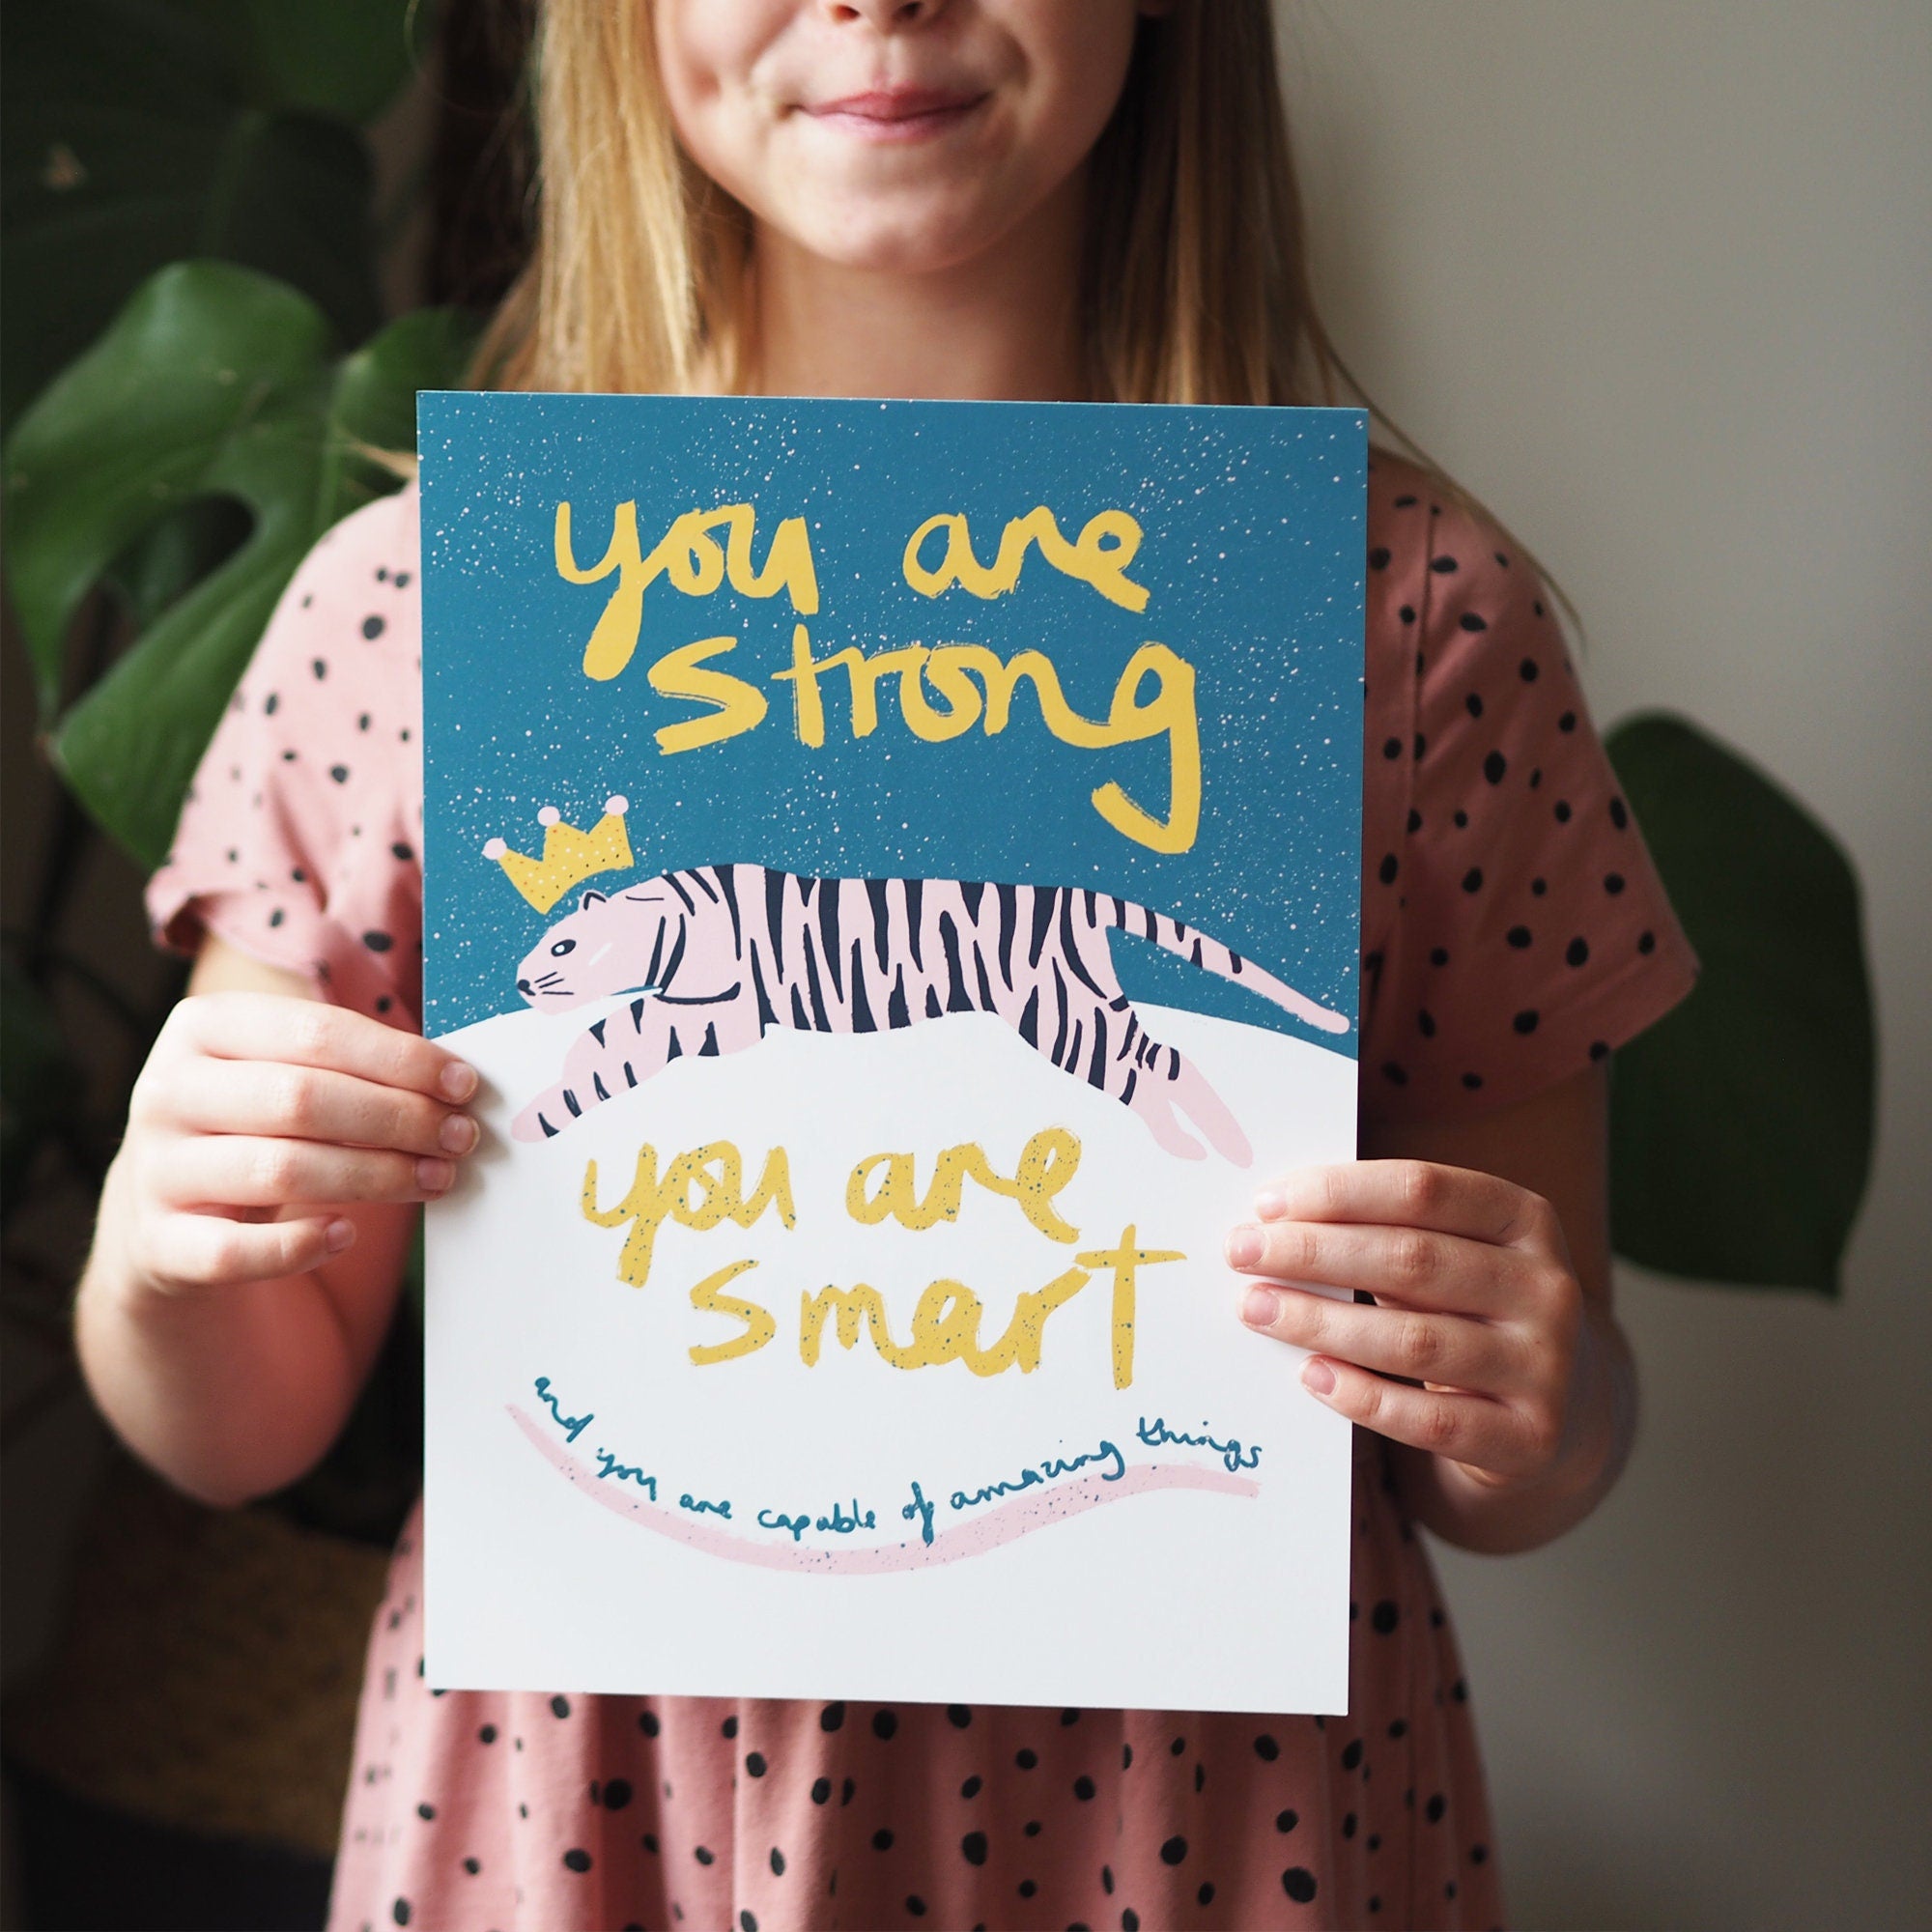 you are
strong
you are
smart
and you are capable of amazing things